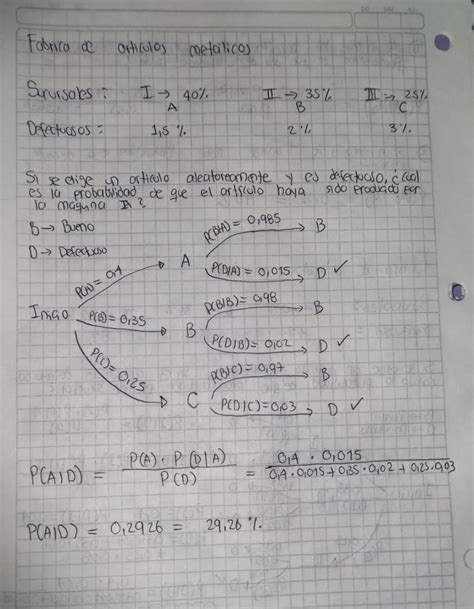 Fabrica de articulos metalicos
Sucursales: I → 40% II → 35% III → 25%
A B C
Defectuosos: 1,5% 2% 3%
Si se elige un articulo aleatoreamente y es defectuoso, ¿cual
es la probabilidad de que el articulo haya sido producido por
la maquina A?
B → Bueno
D → Defectuoso
P(B/A) = 0,985 B
P(A) = 0,4 A
P(D/A) = 0,015 D ✓
P(B/B) = 0,98 B
Inicio P(B) = 0,35 B
P(D/B) = 0,02 D ✓
P(B/C) = 0,97 B
P(C) = 0,25 C
P(D/C) = 0,03 D ✓
P(A/D) = P(A) · P(D/A) / P(D) = 0,4 · 0,015 / 0,4 · 0,015 + 0,35 · 0,02 + 0,25 · 0,03
P(A/D) = 0,2926 = 29,26 %